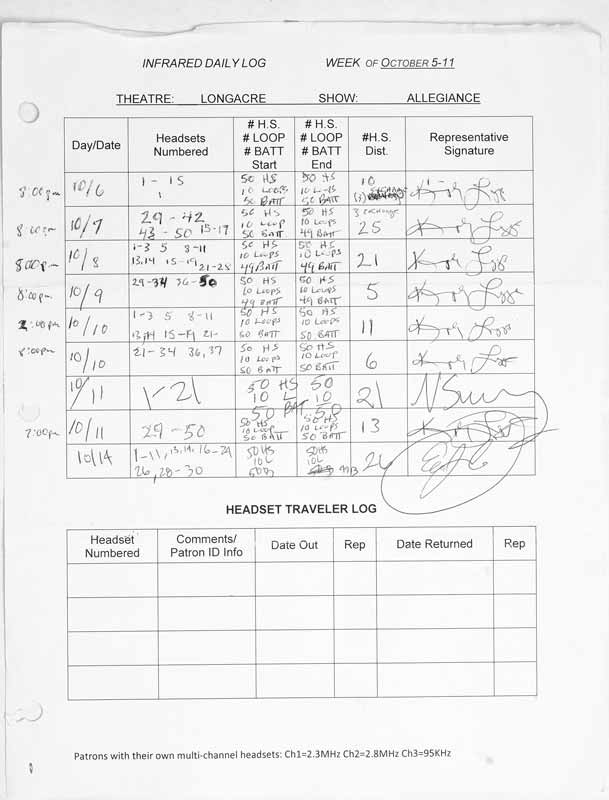 INFRARED DAILY LOG WEEK OF OCTOBER 5-11
THEATRE: LONGACRE SHOW: ALLEGIANCE
Day/Date
Headsets
Numbered
# H.S.
# LOOP
# BATT
Start
# H.S.
# LOOP
# BATT
End
#H.S.
Dist.
Representative
Signature
8:00pm 10/6
1 - 15
50 HS
10 LOOPS
50 BATT
50 HS
50 BATT
10
10/7
29 - 42
43 - 50 15-17
50 HS
10 LOOP
50 BATT
50 HS
10 LOOPS
49 BATT
3 exchange
25
8:00pm 10/8
1-3 5 8-11
13,14 15-19 21-28
50 HS
10 LOOPS
49 BATT
50 HS
10 LOOPS
49 BATT
21
8:00pm 10/9
29-34 36-50
50 HS
10 LOOPS
49 BATT
50 HS
10 LOOPS
49 BATT
5
2:00pm 10/10
1-3 5 8-11
13,14 15-19 21-
50 HS
10 LOOPS
50 BATT
50 HS
10 LOOPS
50 BATT
11
8:00pm 10/10
21-34 36,37
50 HS
10 LOOPS
50 BATT
50 HS
10 LOOP
50 BATT
6
10/11
1-21
50 HS
10 L
50 BAT
50
10
50
21
2:00pm 10/11
29-50
50 HS
10 LOOP
50 BATT
50 HS
10 LOOPS
50 BATT
13
10/14
1-11, 13,14, 16-24
26, 28-30
50HS
10L
50B
50HS
10L
26
HEADSET TRAVELER LOG
Headset
Numbered
Comments/
Patron ID Info
Date Out
Rep
Date Returned
Rep
Patrons with their own multi-channel headsets: Ch1=2.3MHz Ch2=2.8MHz Ch3=95KHz